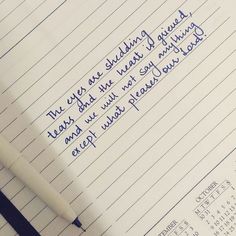 The eyes are shedding
tears and the heart is grieved,
and we will not say anything
except what pleases our Lord
OCTOBER